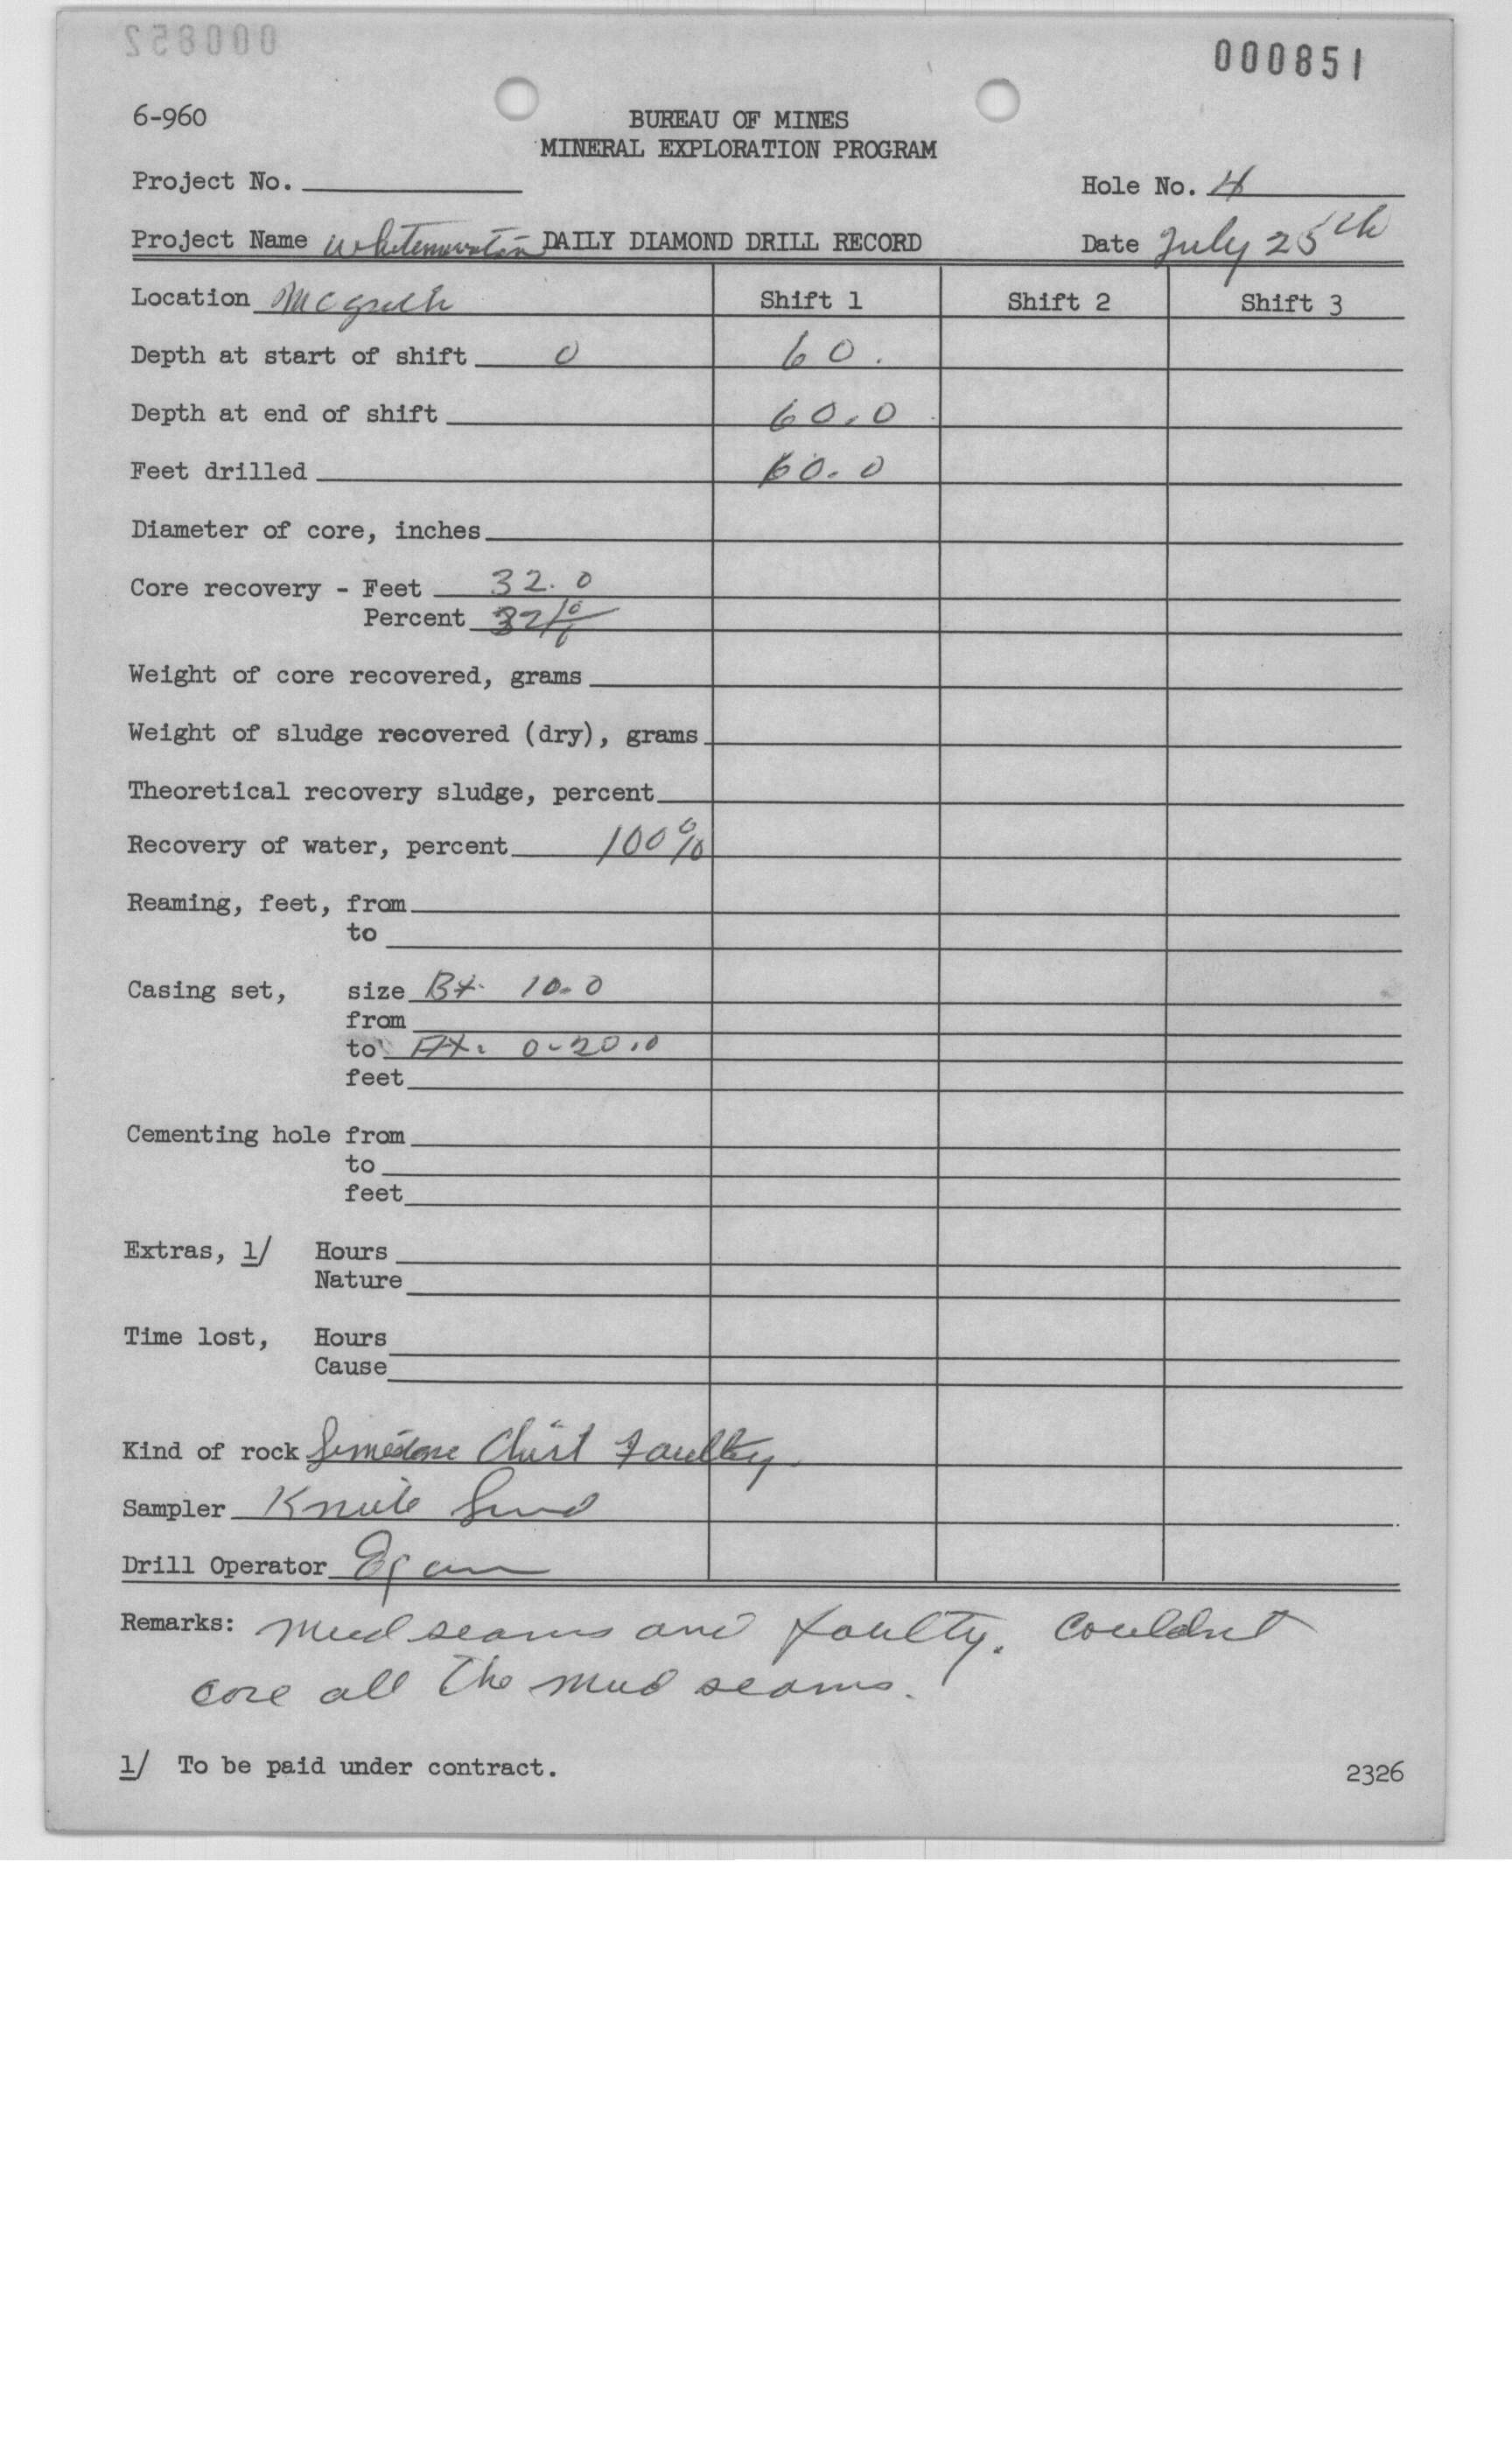 000852
000851
6-960
BUREAU OF MINES
MINERAL EXPLORATION PROGRAM
Project No.
Hole No. 4
Project Name DAILY DIAMOND DRILL RECORD Date July 25th
Location Shift 1 Shift 2 Shift 3
Depth at start of shift 0 60.
Depth at end of shift 60.0
Feet drilled 60.0
Diameter of core, inches
Core recovery - Feet 32.0
Percent 32%
Weight of core recovered, grams
Weight of sludge recovered (dry), grams
Theoretical recovery sludge, percent
Recovery of water, percent 100%
Reaming, feet, from
to
Casing set, size BX. 10.0
from
to AX. 0-20.0
feet
Cementing hole from
to
feet
Extras, 1/ Hours
Nature
Time lost, Hours
Cause
Kind of rock Limestone Chirt Faulty
Sampler Knute
Drill Operator Egan
Remarks: Mud seams and faulty. Couldnt
core all the mud seams.
1/ To be paid under contract.
2326